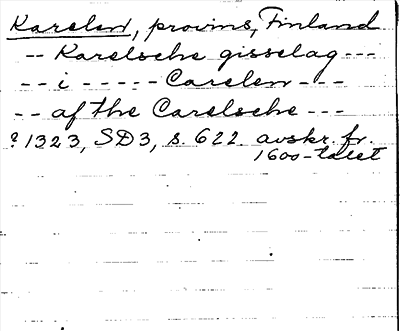 Karelen, provins, Finland
-- Karelsche gisselag ---
-- i ----- Carelen ---
-- af the Carelsche ---
? 1323, SD3, s. 622 avskr. fr.
1600-talet